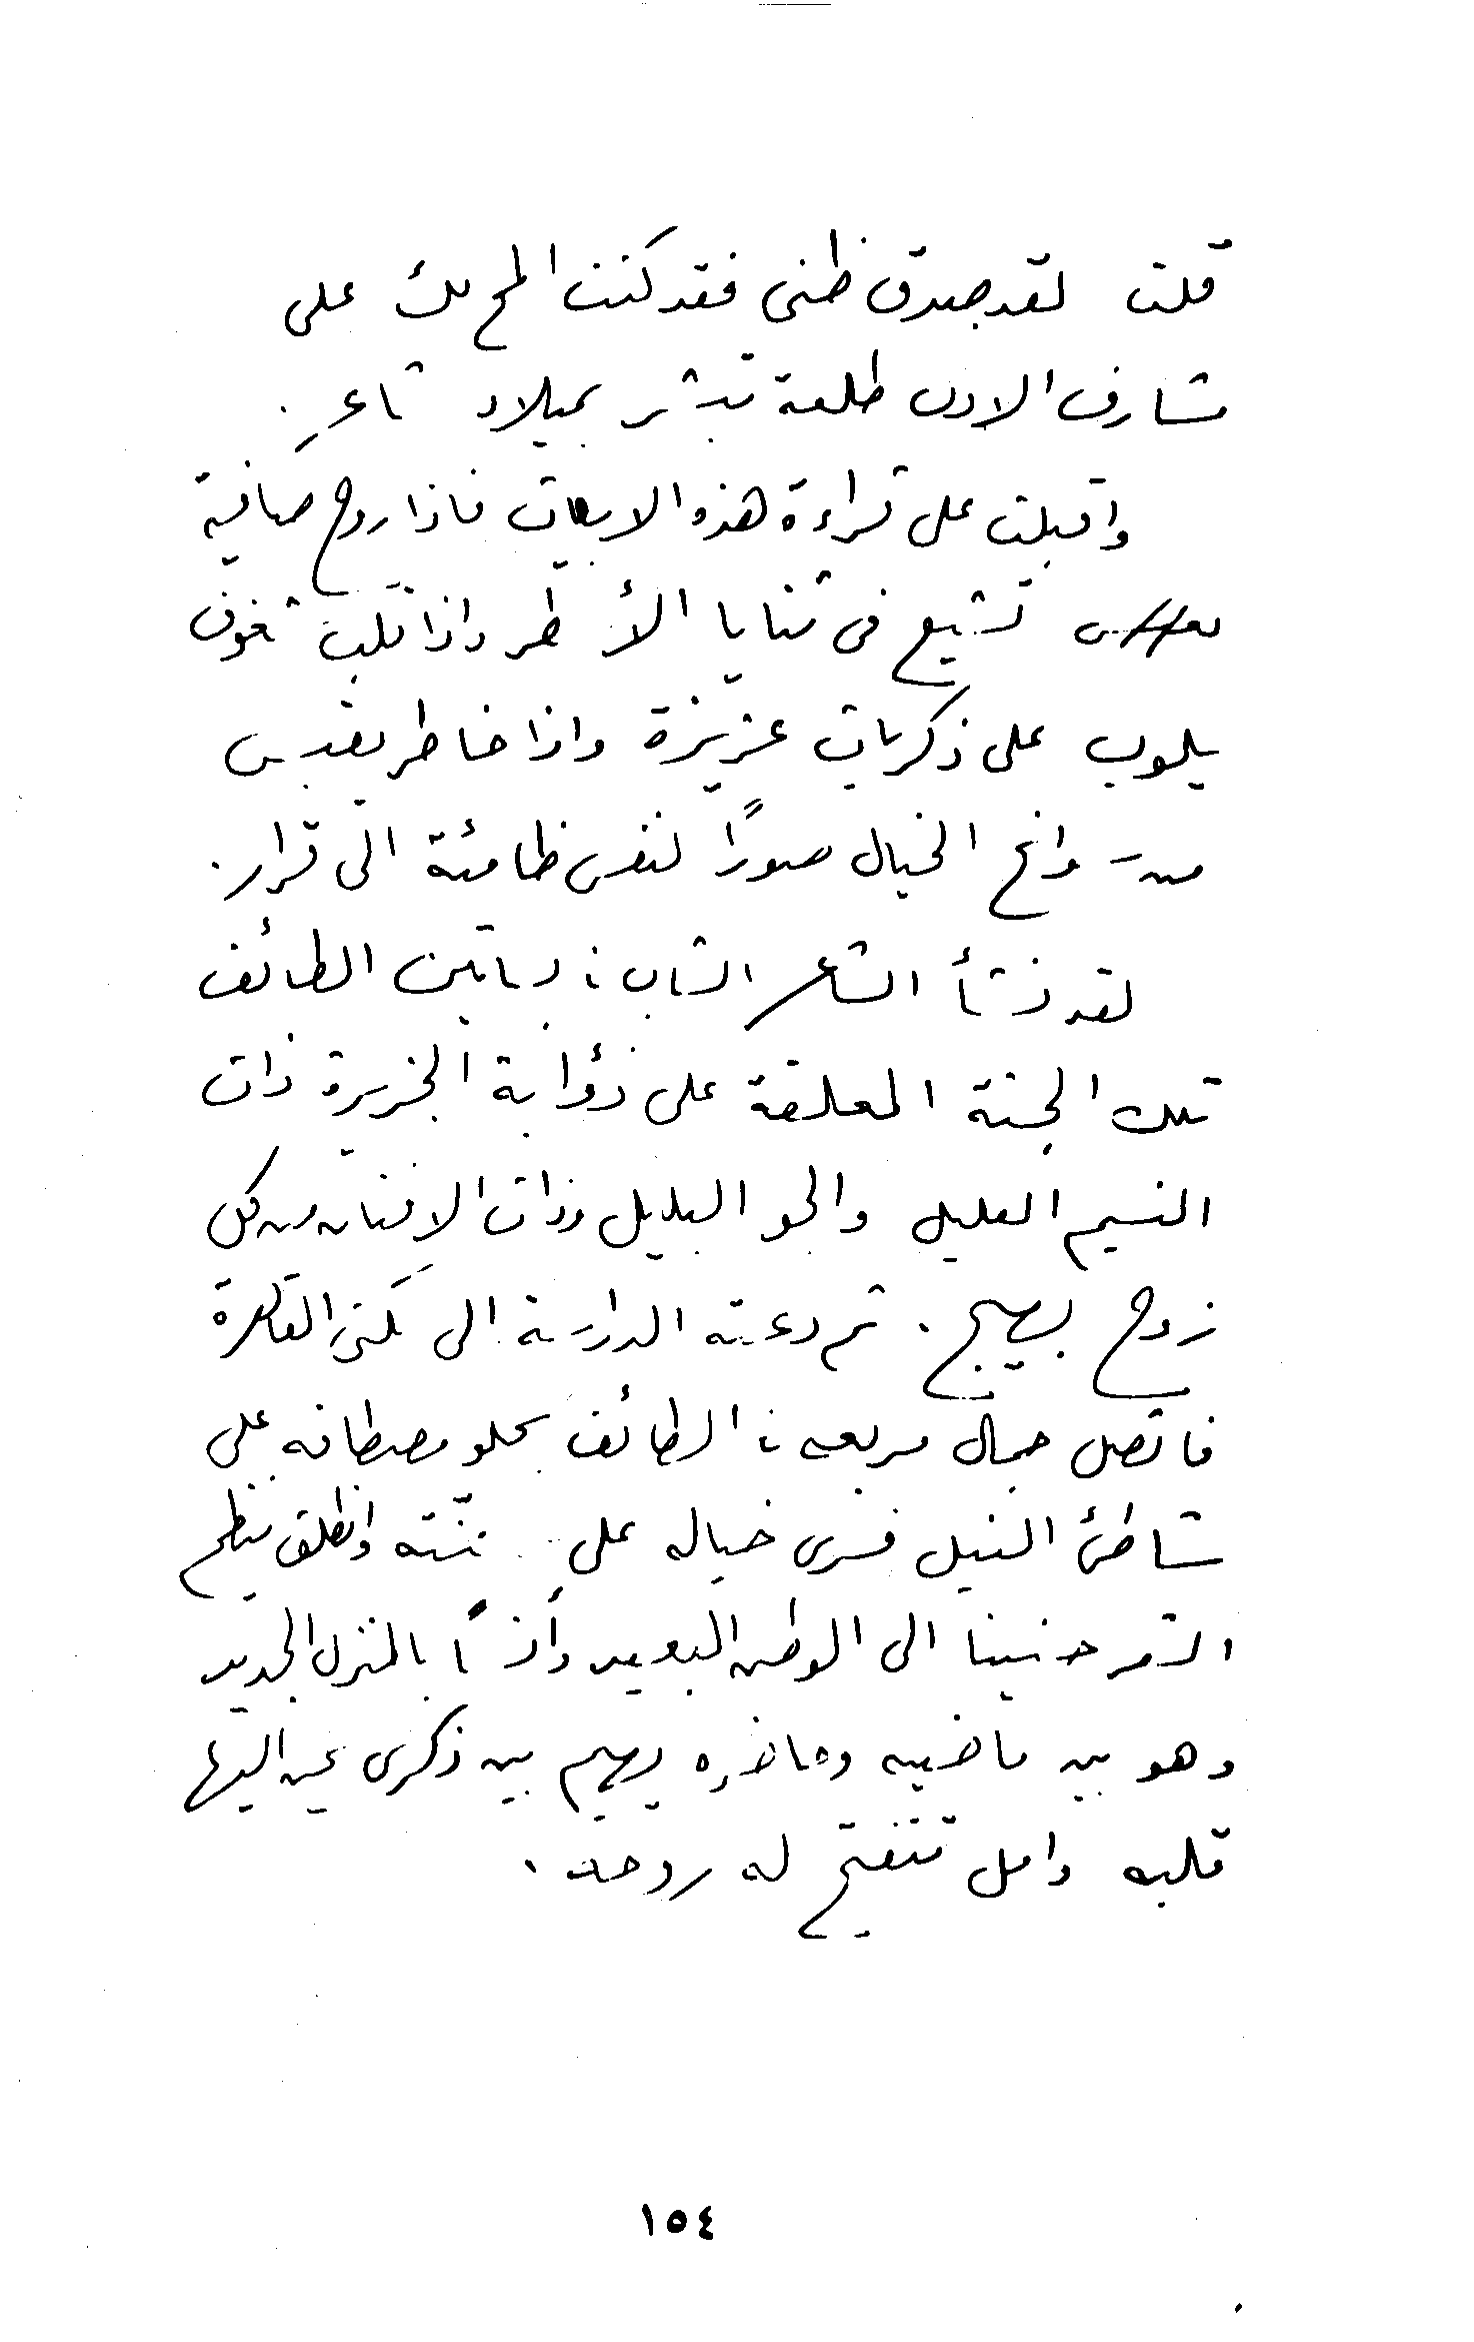 قلت لقد صدق ظنى فقد كنت المح لك على
مشارف الادب طلعة تبشر بميلاد شاعر .
واقبلت على قراءة هذه الابيات فاذا روح صافية
تشيع فى ثنايا الأسطر واذا قلب شغوف
يلوب على ذكريات عزيزة واذا خاطر يقتبس
من سوانح الخيال صورًا لنفس ظامئة الى قرار .
لقد نشأ الشاعر الشاب فى بساتين الطائف
تلك الجنة المعلقة على ذؤابة الجزيرة ذات
النسيم العليل والجو البليل وذات الافنان من كل
زوج بهيج . ثم دعته الدراسة الى سكنى القاهرة
فاتصل جمال مربعه فى الطائف بحلو مصطافه على
شاطئ النيل فسرى خياله على وانطلق ينظم
الشعر حنينا الى الوطن البعيد وأنسًا بالمنزل الجديد
وهو بين ماضيه وحاضره يهيم بين ذكرى يحن اليها
قلبه وامل تتفتح له روحه .
١٥٤